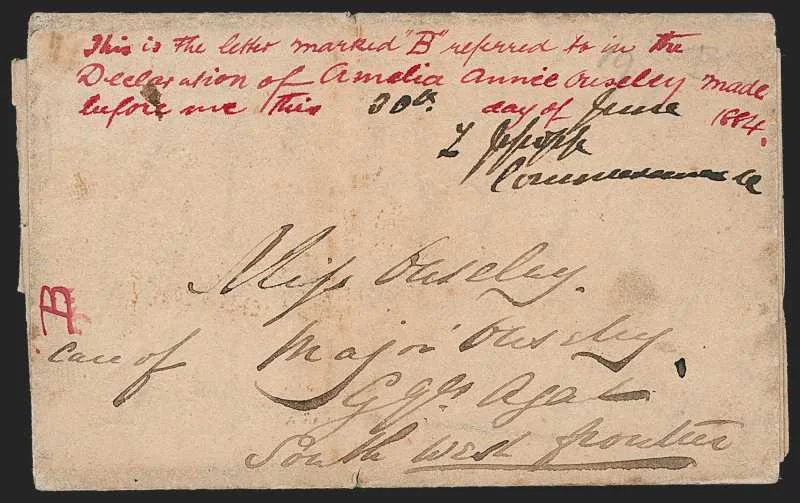 This is the letter marked "B" referred to in the
Declaration of Amelia Annie Ouseley made
before me this 30th day of June 1884.
Miss Ouseley.
B
care of Major Ouseley.
Agent
South West frontier